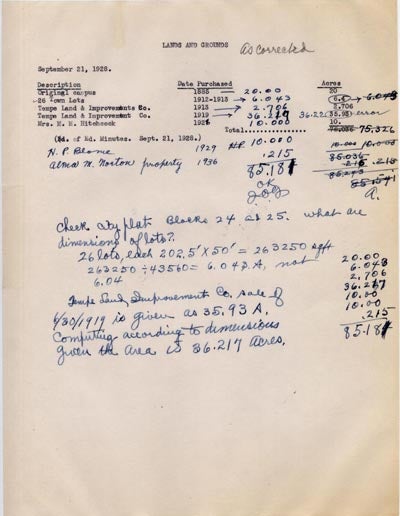 LANDS AND GROUNDS as corrected
September 21, 1928.
Description Date Purchased Acres
Original campus 1885 20.00 20
26 Town lots 1912-1913 → 6.043 6.043
Tempe Land & Improvements Co. 1913 → 2.706 2.706
Tempe Land & Improvement Co. 1919 → 36.217 35.93 error
Mrs. M. E. Hitchcock 10.000 10.
Total 75.326
(Bd. of Ed. Minutes. Sept. 21, 1928.)
H. P. Blome 1929 HP 10.000 10.000
Alma M. Norton property 1936 .215 85.036
85.181
OK
A.
Check by plat Blocks 24 & 25. What are
dimensions of lots?
26 lots, each 202.5' X 50' = 263250 sq ft
263250 ÷ 43560 = 6.04 A, not
6.04
Tempe Land Improvement Co. sale of
6/30/1919 is given as 35.93 A.
Computing according to dimensions
given the area is 36.217 acres.
20.00
6.043
2.706
36.217
10.00
10.00
.215
85.181